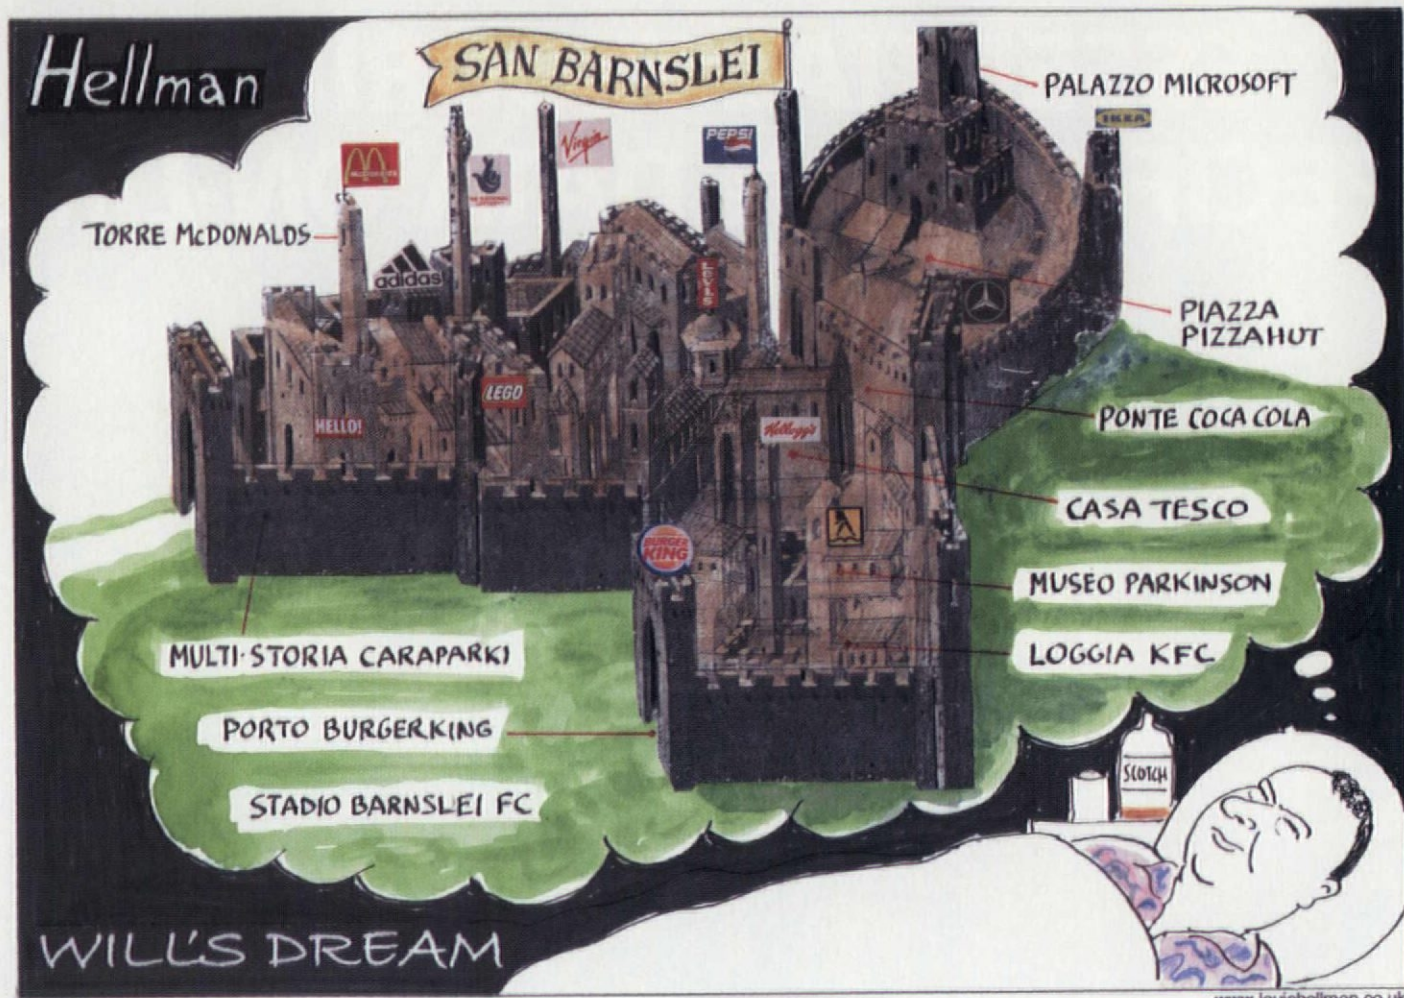 Hellman
SAN BARNSLEI
PALAZZO MICROSOFT
IKEA
McDONALD'S
Virgin
PEPSI
TORRE McDONALDS
adidas
LEVI'S
PIAZZA
PIZZAHUT
LEGO
HELLO!
Kellogg's
PONTE COCA COLA
CASA TESCO
BURGER
KING
MUSEO PARKINSON
MULTI-STORIA CARAPARKI
LOGGIA KFC
PORTO BURGERKING
SCOTCH
STADIO BARNSLEI FC
WILL'S DREAM
www.louishellman.co.uk